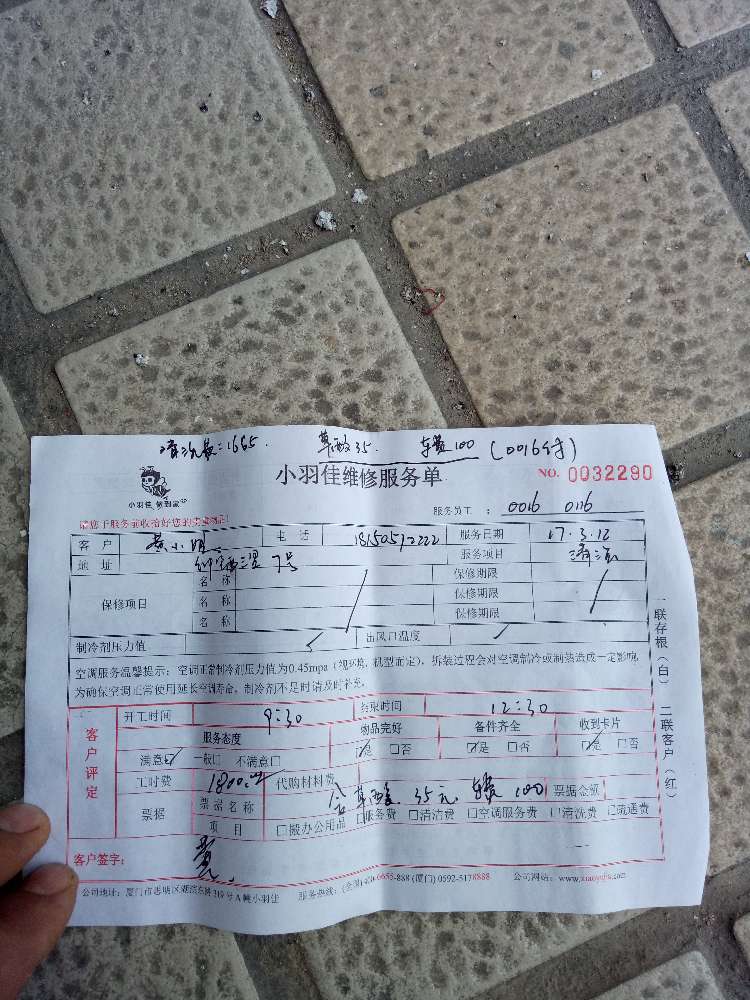 =1665. 草酸35 车费100 (0016付)
小羽佳维修服务单 NO. 0032290
小羽佳 做到家
服务员工： 0016 0116
请您于服务前收拾好您的贵重物品!
客户 黄小姐 电话 18150512222 服务日期 17.3.12
地址 三里7号 服务项目 清洗
保修项目 名称 保修期限
名称 保修期限
名称 保修期限
制冷剂压力值 出风口温度
空调服务温馨提示：空调正常制冷剂压力值为0.45mpa（视环境、机型而定），拆装过程会对空调制冷或制热造成一定影响，
为确保空调正常使用延长空调寿命，制冷剂不足时请及时补充。
客户评定
开工时间 9:30 结束时间 12:30
服务态度 物品完好 备件齐全 收到卡片
满意☑ 一般□ 不满意□ ☑是 □否 ☑是 □否 ☑是 □否
工时费 1800.00 代购材料费 含草酸35元 车费100 票据金额
票据 票据名称
项目 □搬办公用品 □服务费 □清洁费 □空调服务费 □清洗费 □疏通费
客户签字： 黄
公司地址：厦门市思明区湖滨东路319号A幢小羽佳 服务热线：(全国)400-6655-888 (厦门) 0592-5178888 公司网站：www.xiaoyujia.com
一联存根（白） 二联客户（红）